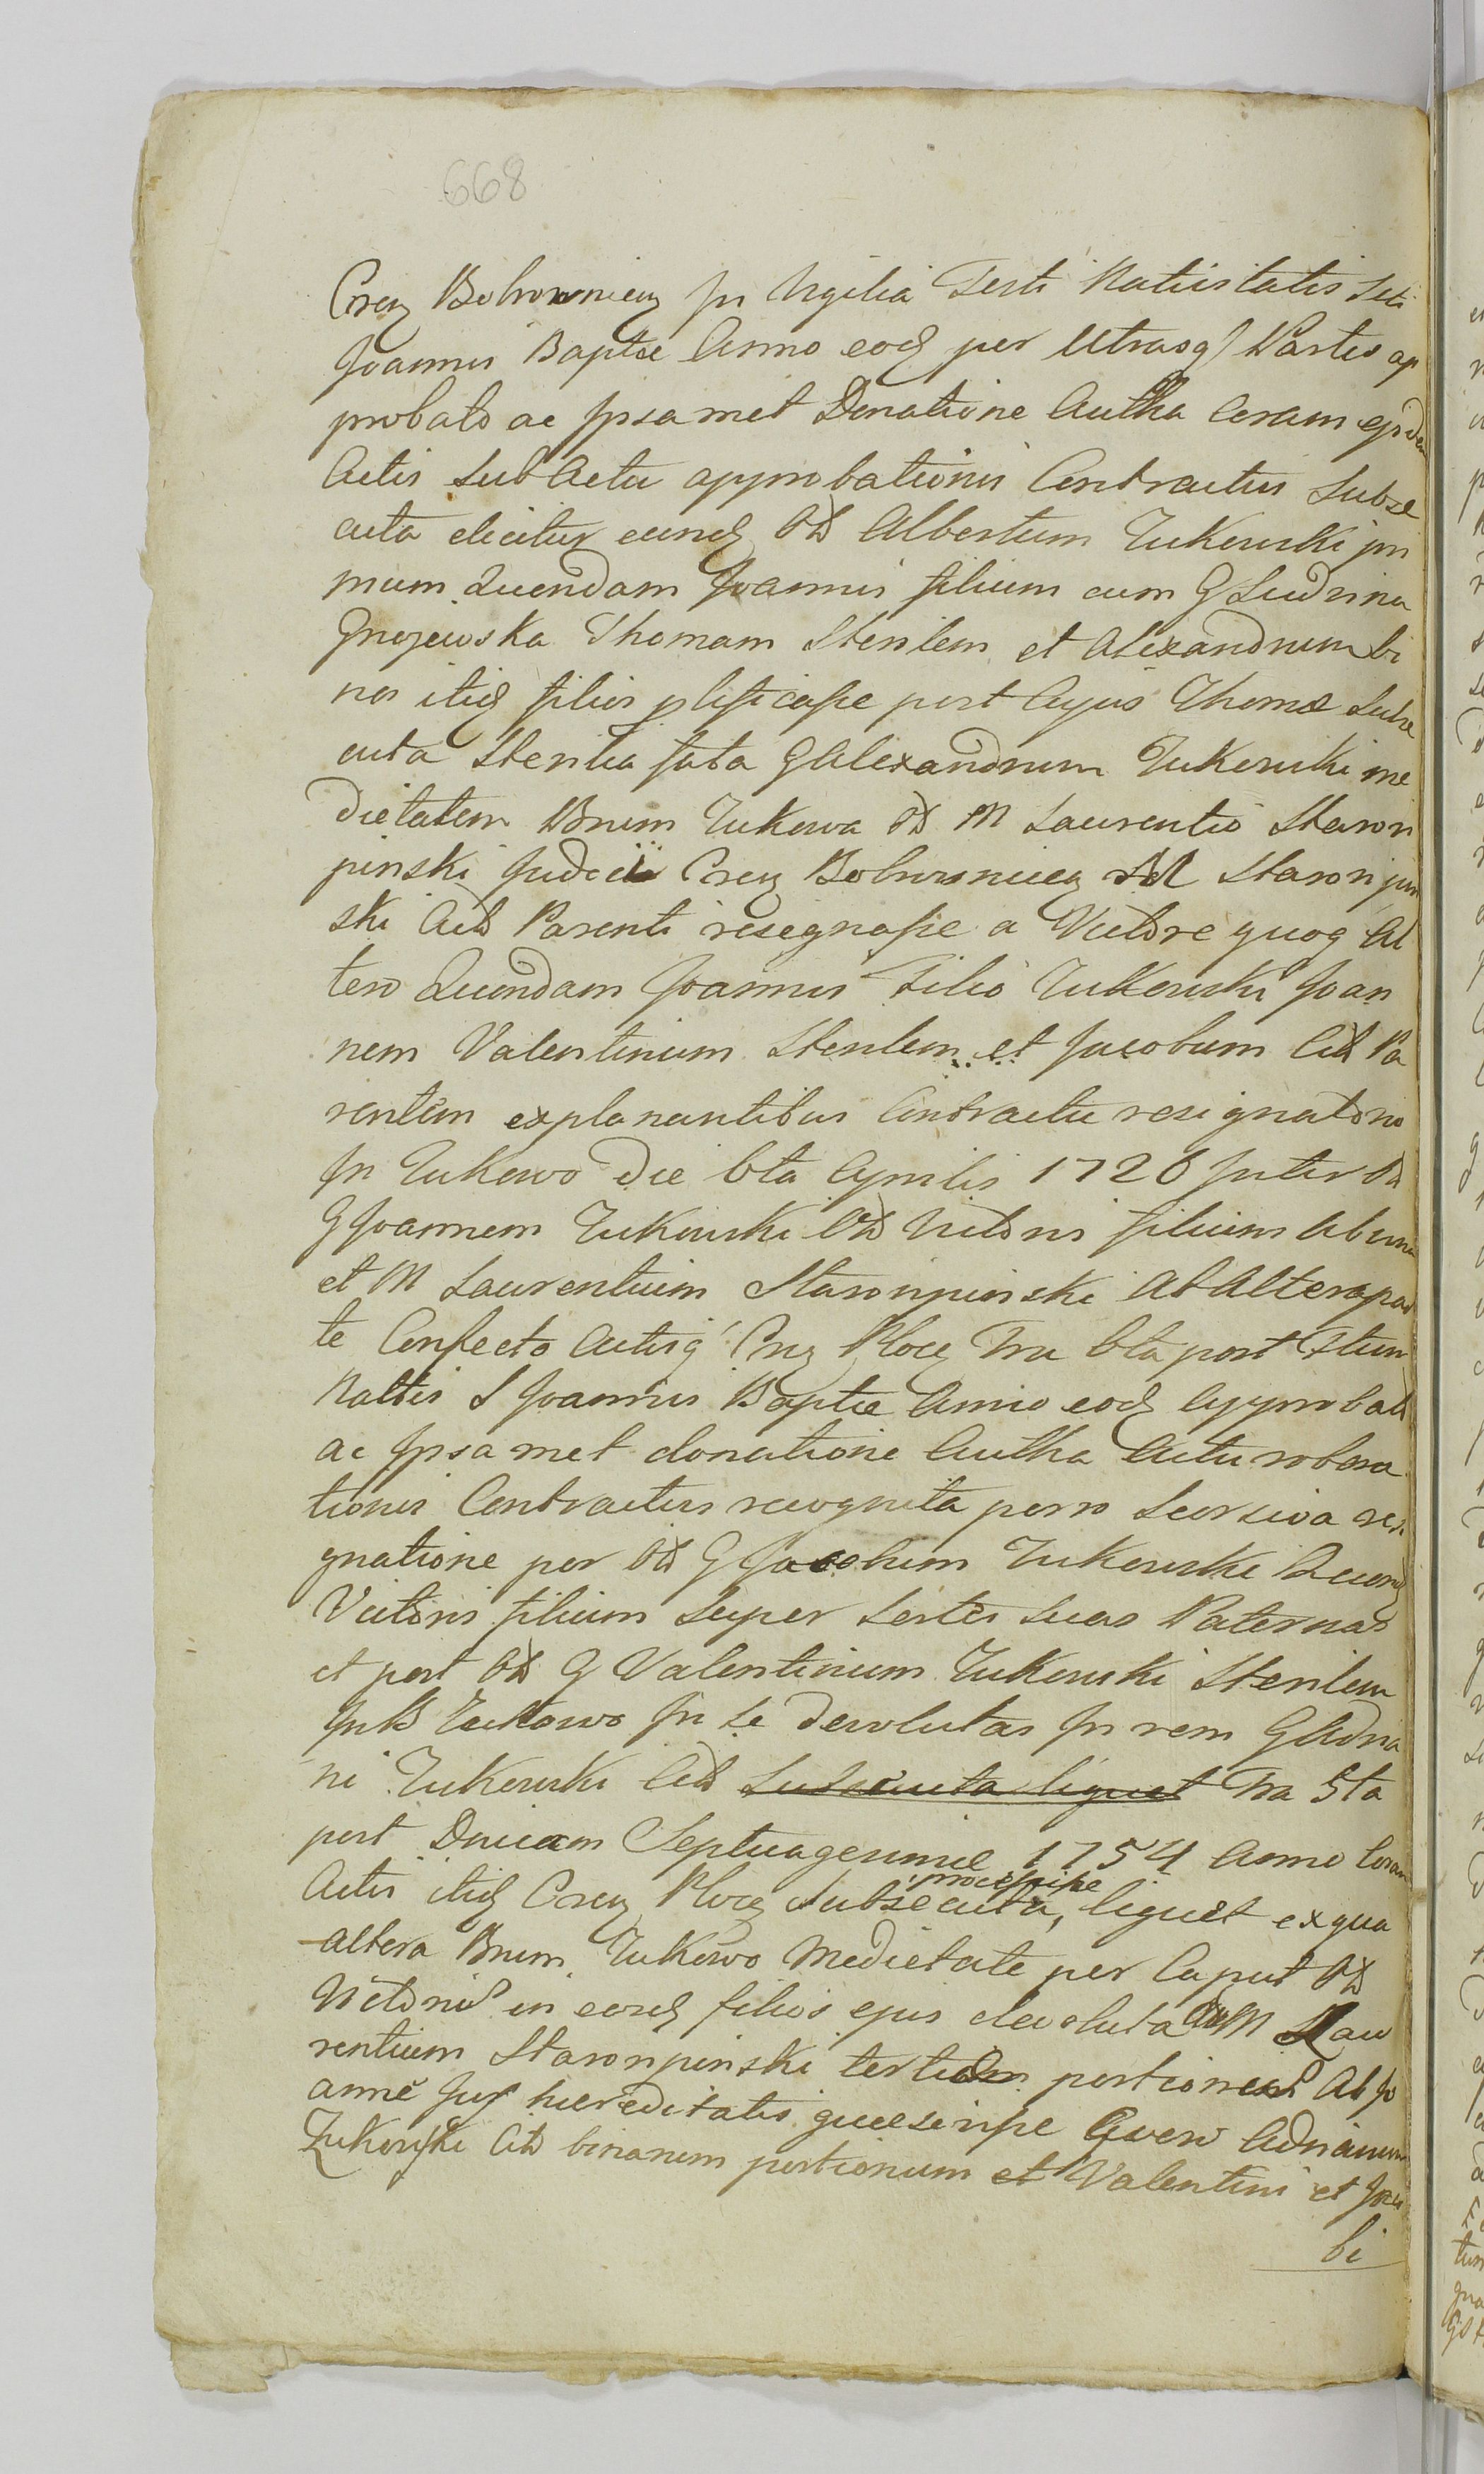 668
Cren Bobrownicen In Vigilia Festi Nativitatis Sti
Joannis Baptae Anno eod per Utrasq Partes ap
probato ac Ipsamet Donatione Autha Coram ejsdem
Actis Sub Actu approbationis Contractus Subse
cuta elicitur eund Od Albertum Zukowski pri
mum Quondam Joannis filium cum G Ludvina
Gnojewska Thomam Sterilem et Alexandrum bi
nos itid filios plificasse post Cujus Thomae Subse
cuta Sterilia fata G Alexandrum Zukowski me
dietatem Bnum Zukowa Od M Laurentio Staron
pinski Judici Cren Bobrownicen M Staronpin
ski Acto Parenti resegnasse a Victore quoq Al
tero Quondam Joannis Filio Zukowski Joan
nem Valentinum Sterilem et Jacobum Actt Pa
rentem explanantibus Contractu resignatorio
In Zukowo Die 6ta Aprilis 1726 Inter Od
G Joannem Zukowski Od Victoris filium Ab una
et M Laurentium Staronpinski Ab Altera par
te Confecto Actisq Cren Plocen Fria 6ta post Fstum
Naltis S Joannis Baptae Anno eod Approbato
ac Ipsamet donatione Autha Actu robora
tionis Contractus recognita porro Seorsiva resi
gnatione per Od G Jacobum Zukowski Quond
Victoris filium Super Sortes Suas Paternas
et post Od G Valentinum Zukowski Sterilem
In B Zukowo In Se devolutas In rem G Adria
ni Zukowski Actt Subsecuta liquet Fria 5ta
post Dnicam Septuagesimae 1754 Anno Coram
Actis itid Cren Plocen Subsecuta, processisse liquet ex qua
altera Bnum Zukowo Medietate per Caput Od
Victoris in eosd filios ejus devoluta Od M Lau
rentium Staronpinski tertiam portionem Ab Jo
anne Jux haereditatis quaesivisse G vero Adrianum
Zukowski Actt binarum portionum et Valentini et Jaco
bi